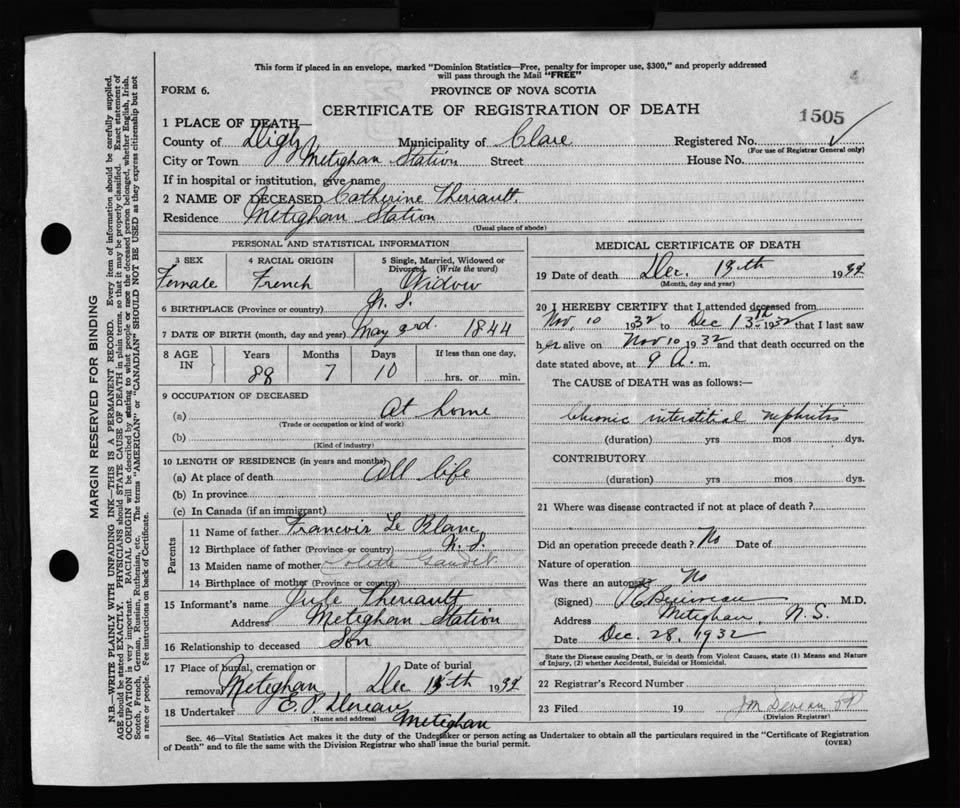 This form if placed in an envelope, marked "Dominion Statistics—Free, penalty for improper use, $300," and properly addressed
will pass through the Mail "FREE"
FORM 6.
PROVINCE OF NOVA SCOTIA
CERTIFICATE OF REGISTRATION OF DEATH
1505
1 PLACE OF DEATH—
County of Digby Municipality of Clare Registered No.
(For use of Registrar General only)
City or Town Meteghan Station Street House No.
If in hospital or institution, give name
2 NAME OF DECEASED Catherine Theriault.
Residence Meteghan Station
(Usual place of abode)
PERSONAL AND STATISTICAL INFORMATION
3 SEX 4 RACIAL ORIGIN 5 Single, Married, Widowed or
Divorced (Write the word)
Female French Widow
6 BIRTHPLACE (Province or country) N. S.
7 DATE OF BIRTH (month, day and year) May 3rd. 1844
8 AGE IN Years Months Days If less than one day,
88 7 10 hrs. or min.
9 OCCUPATION OF DECEASED
(a) At home
(Trade or occupation or kind of work)
(b)
(Kind of industry)
10 LENGTH OF RESIDENCE (in years and months)
(a) At place of death All life
(b) In province
(c) In Canada (if an immigrant)
Parents
11 Name of father Francois Le Blanc
12 Birthplace of father (Province or country) N. S.
13 Maiden name of mother
14 Birthplace of mother (Province or country)
15 Informant's name Jule Theriault
Address Meteghan Station
16 Relationship to deceased Son
17 Place of burial, cremation or Date of burial
removal Meteghan Dec 15th 1932
18 Undertaker
(Name and address) Meteghan
MEDICAL CERTIFICATE OF DEATH
19 Date of death Dec. 13th 1932
(Month, day and year)
20 I HEREBY CERTIFY that I attended deceased from
Nov. 10 1932 to Dec 13th 1932 that I last saw
her alive on Nov 10 1932 and that death occurred on the
date stated above, at 9 a. m.
The CAUSE OF DEATH was as follows:—
Chronic interstitial nephritis
(duration) yrs mos dys.
CONTRIBUTORY
(duration) yrs mos dys.
21 Where was disease contracted if not at place of death?
Did an operation precede death? No Date of
Nature of operation
Was there an autopsy No
(Signed) M.D.
Address Meteghan, N. S.
Date Dec. 28, 1932
State the Disease causing Death, or in death from Violent Causes, state (1) Means and Nature
of Injury, (2) whether Accidental, Suicidal or Homicidal.
22 Registrar's Record Number
23 Filed 19
(Division Registrar)
Sec. 46—Vital Statistics Act makes it the duty of the Undertaker or person acting as Undertaker to obtain all the particulars required in the "Certificate of Registration
of Death" and to file the same with the Division Registrar who shall issue the burial permit.
(OVER)
MARGIN RESERVED FOR BINDING
N.B.—WRITE PLAINLY WITH UNFADING INK—THIS IS A PERMANENT RECORD. Every item of information should be carefully supplied.
AGE should be stated EXACTLY. PHYSICIANS should STATE CAUSE OF DEATH in plain terms, so that it may be properly classified. Exact statement of
OCCUPATION is very important. RACIAL ORIGIN will be described by stating to what people or race the deceased person belonged, whether English, Irish,
Scotch, French, German, Russian, Ruthenian, etc. The terms "AMERICAN" or "CANADIAN" SHOULD NOT BE USED as they express citizenship but not
a race or people. Fee instructions on back of Certificate.